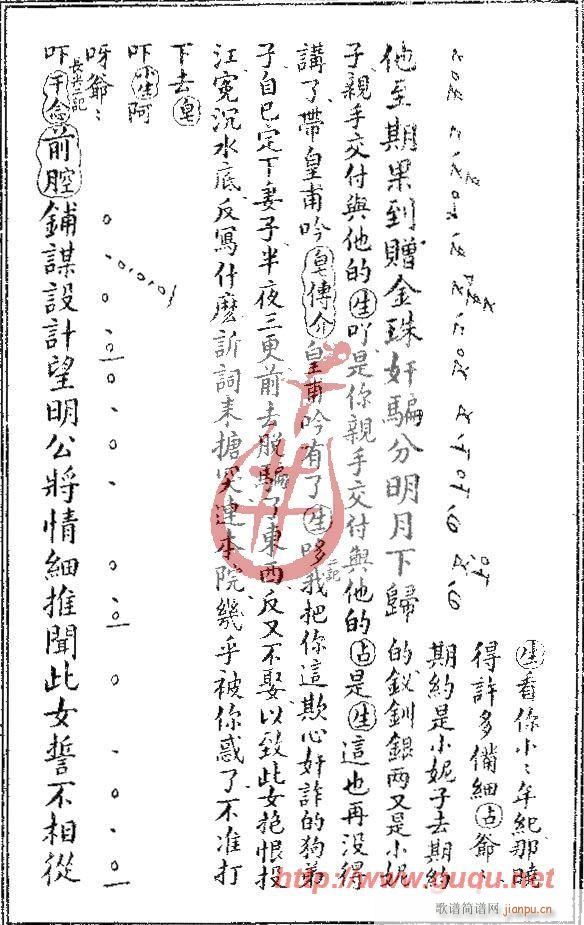 他至期果到贈金珠奸騙分明月下歸
生看你小〻年紀那曉
得許多備細占爺〻
期約是小妮子去期約
的釵釧銀兩又是小妮
子親手交付與他的生吖是你親手交付與他的占是生這也再沒得
講了帶皇甫吟皂傳介皇甫吟有了生哆我把你這欺心奸詐的狗弟
子自己定下妻子半夜三更前去脫騙了東西反又不娶以致此女抱恨投
江冤沉水底反寫什麽訴詞來搪突連本院幾乎被你惑了不准打
下去皂
吓小生阿
呀爺〻
長尖二記
吓干念前腔鋪謀設計望明公將情細推聞此女誓不相從
http://www.guqu.net
歌谱简谱网
jianpu.cn